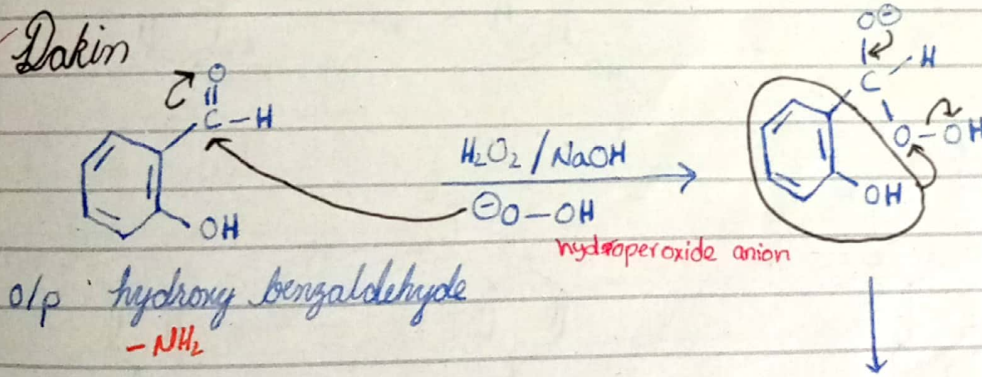 Dakin
O
C-H
OH
H₂O₂/NaOH
⊖O-OH
hydroperoxide anion
O⊖
C H
O-OH
OH
o/p hydroxy benzaldehyde
-NH₂